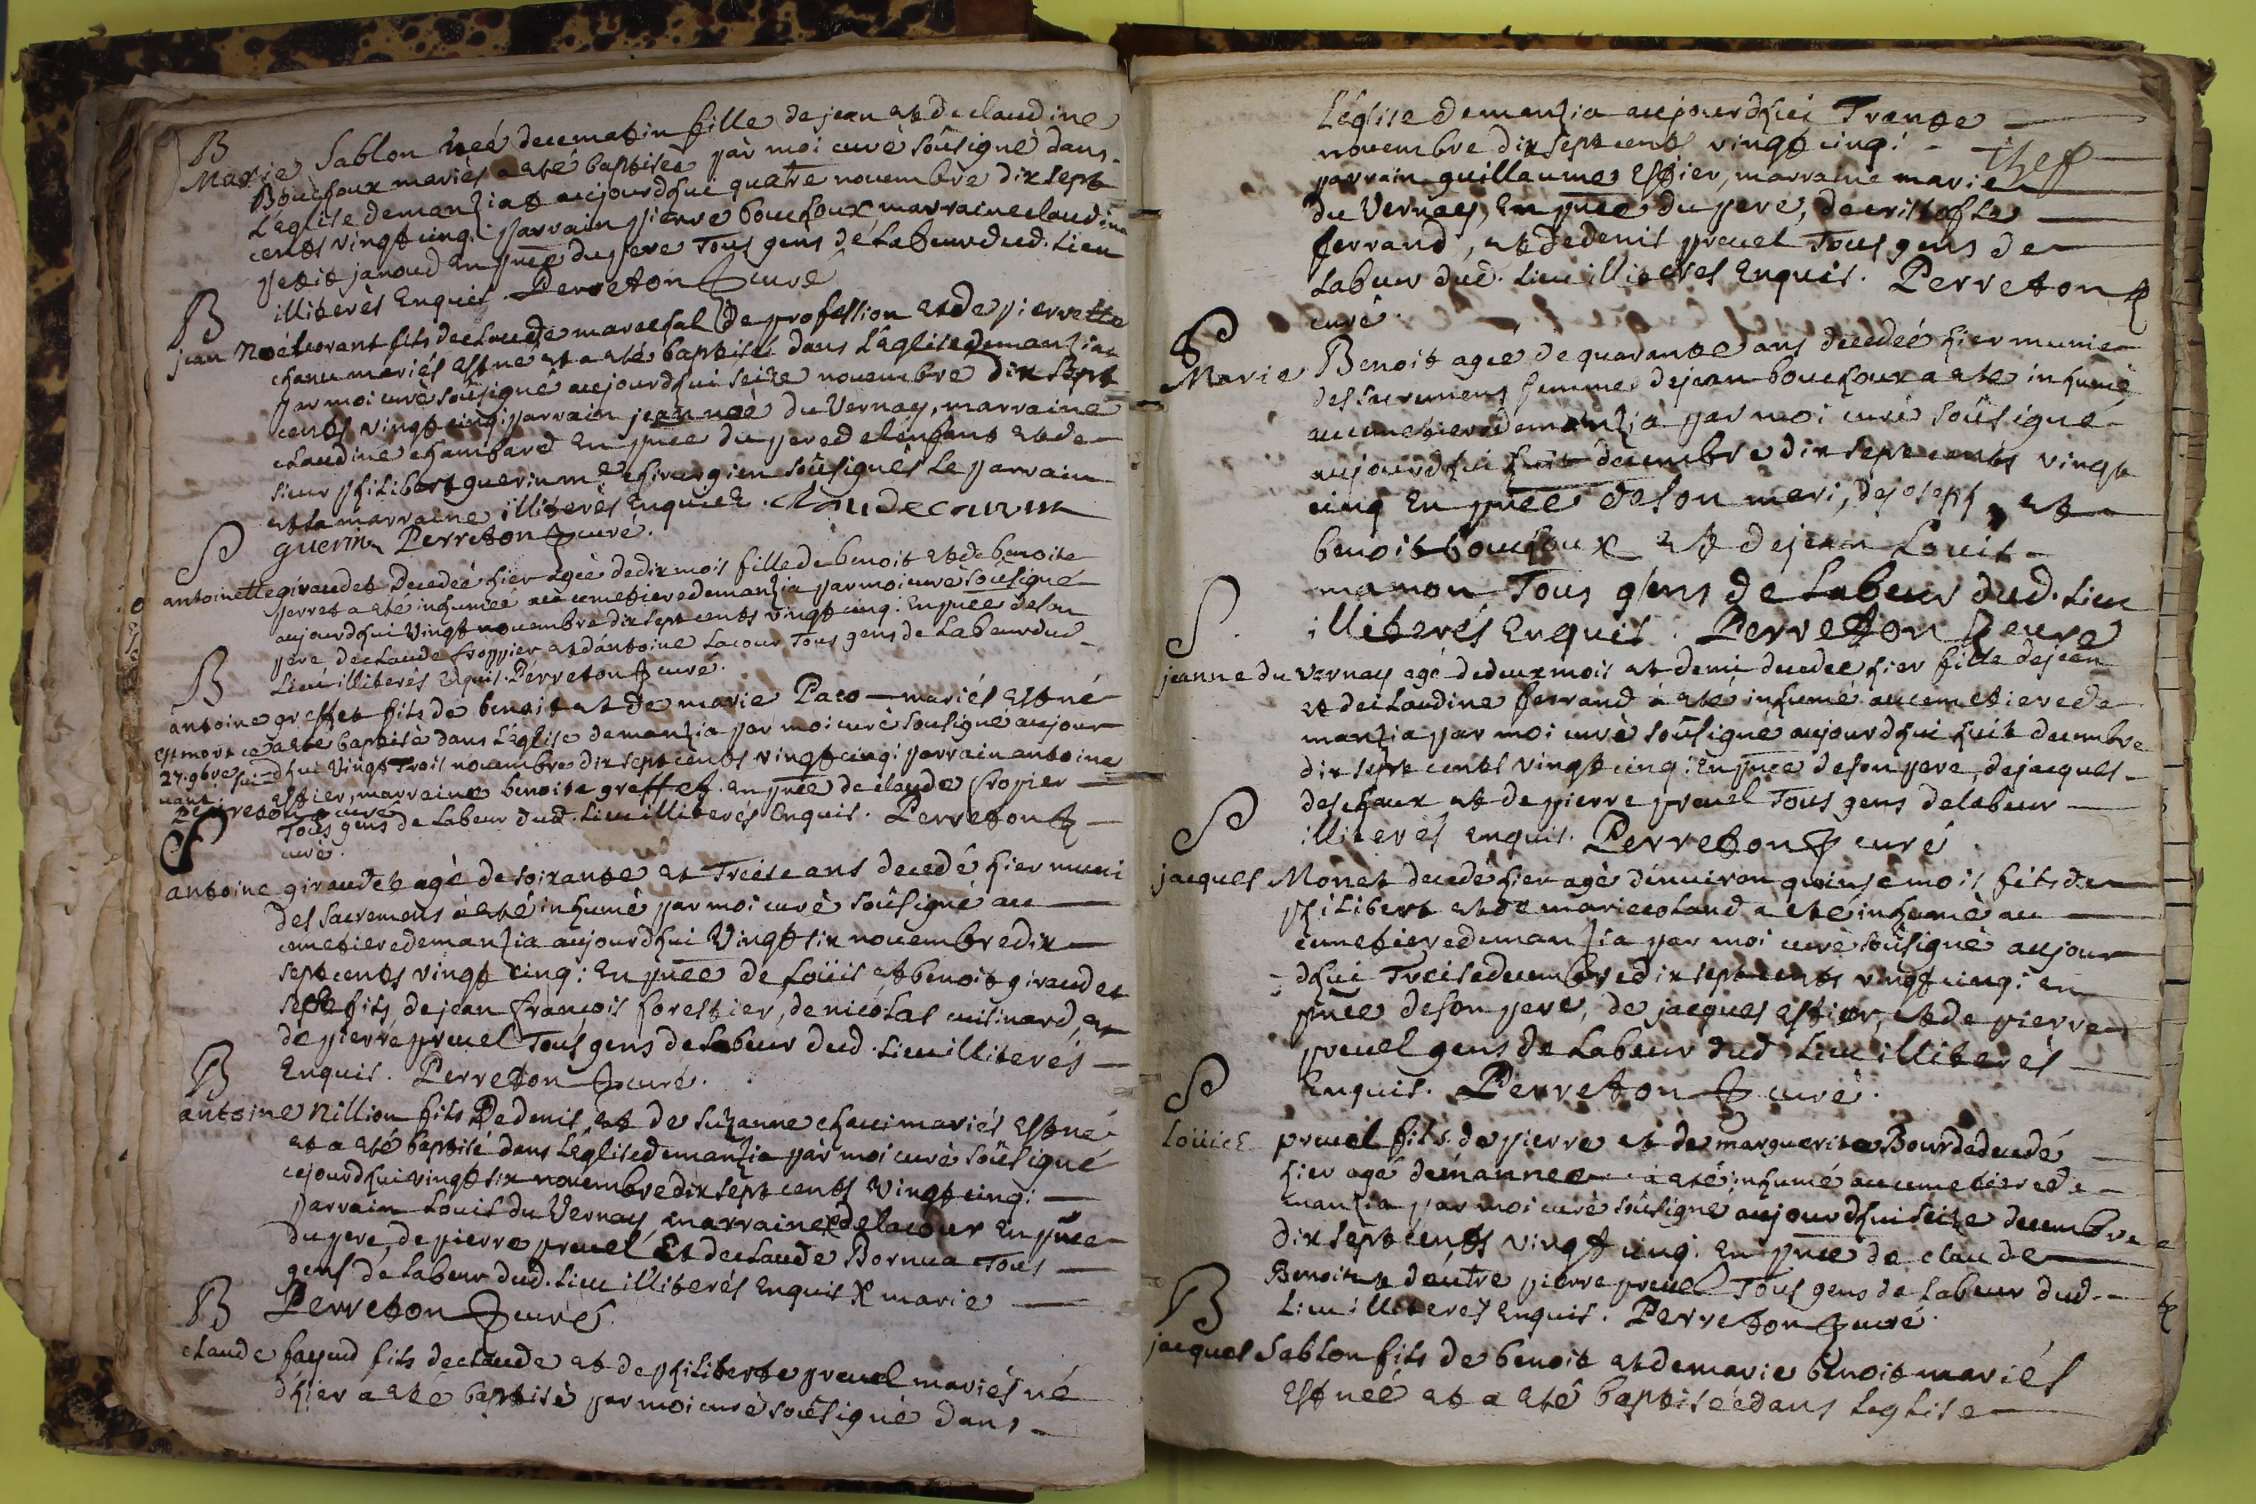 B
Marie Sablon neé de ce matin fille de jean et de claudine
Bouchoux mariés a eté baptiseé par moi curé soûsigné dans
L'eglise demanziat aujourdhui quatre novembre dix sept
cents vingt cinq: parrain pierre bouchoux marraine claudine
petit janoud En pñce du pere Tous gens de Labeur dud. Lieu
illiterés Enquis. Perreton curé
B
jean Noé Laurant fils de claude marechal de profession et de pierrette
chanu mariés est né et a eté baptisé dans L'eglise demanziat
par moi curé soûsigné aujourdhui seize novembre dix sept
cents vingt cinq: parrain jean noé du Vernay, marraine
claudine chambard En pñce du pere de lenfant et de
sieur philibert guerin me chirurgien soûsignés Le parrain
et La marraine illiterés Enquis.
guerin Perreton curé.
S
antoinette giraudet decedeé hier ageé de dix mois fille de benoit et de benoite
perret a eté inhumeé au cemetiere demanzia par moi curé soûsigné
aujourdhui Vingt novembre dix sept cents vingt cinq: En pñce de son
pere, de claude froppier et dantoine Lacour Tous gens de Labeur dud
Lieu illiterés Enquis. Perreton curé.
B
antoine greffet fils de benoit et de marie Paco mariés est né
et a eté baptisé dans L'eglise demanzia par moi curé soûsigné aujour
dhui Vingt Trois novembre dix sept cents vingt cinq: parrain antoine
estier, marraine benoite greffet. En pñce de claude fropier
Tous gens de Labeur dud. Lieu illiterés Enquis. Perreton
curé.
est mort ce
27. 9bre sui
vant.
Perreton curé
S
antoine giraudet agé de soixante et Treise ans decedé hier muni
des sacremens à eté inhumé par moi curé soûsigné au
cemetiere demanzia aujourdhui Vingt six novembre dix
sept cents vingt cinq: En pñce de Loüis et benoit giraudet
ses fils, de jean françois forestier, de nicolas cuisinard, et
de pierre preuel Tous gens de Labeur dud. Lieu illiterés
Enquis. Perreton curé.
B
antoine Nillion fils de denis, et de suzanne chaui mariés est né
et a eté baptisé dans L'eglise demanzia par moi curé soûsigné
cejourdhui vingt six novembre dix sept cents vingt cinq:
parrain Louis du Vernay, marraine x de lacour En pñce
du pere, de pierre preuel Et de claude Bornua Tous
gens de Labeur dud. Lieu illiterés Enquis x marie
Perreton curé.
B
claude fayeud fils de claude et de philiberte preuel mariés né
dhier a eté baptisé par moi curé soûsigné dans
L'eglise demanzia aujourdhui Trante
novembre dix sept cents vingt cinq:
parrain guillaume Estier, marraine marie
du Vernay, En pñce du pere, de cristofle
ferrand, et de denis preuel Tous gens de
Labeur dud. Lieu illiterés Enquis. Perreton
curé.
S
Marie Benoit ageé de quarante ans decedeé hier munie
des sacremens femme de jean bouchoux a eté inhumé
au cemetiere demanzia par moi curé soûsigné
aujourdhui huit decembre dix sept cents vingt
cinq En pñce de son mari, de joseph, et
benoit bouchoux et de jean Louis
mamon Tous gens de Labeur dud. Lieu
illiterés Enquis. Perreton curé
S.
jeanne du vernay agé de deux mois et demi decedeé hier fille de jean
et de claudine ferrand à eté inhumé au cemetiere de
manzia par moi curé soûsigné aujourdhui huit decembre
dix sept cents vingt cinq: En pñce de son pere, de jacques
deschaux et de pierre preuel Tous gens de labeur
illiterés Enquis. Perreton curé
S
jacques Monet decedé hier agé dénuiron quinse mois fils de
philibert et de marie coland a eté inhumé au
cemetiere demanzia par moi curé soûsigné aujour
dhui Treise decembre dix sept cents vingt cinq: en
pñce de son pere, de jacques estier, et de pierre
preuel gens de Labeur dud. Lieu illiterés
Enquis. Perreton curé.
S
Loüise preuel fils de pierre et de marguerite Bourde decedé
hier agé demannee à eté inhumé au cemetiere de
manzia par moi curé soûsigné aujourdhui seize decembre
dix sept cents vingt cinq. En pñce de claude
Benoit et dautre pierre preuel Tous gens de Labeur dud.
Lieu illiterés Enquis. Perreton curé.
B
jacques Sablon fils de benoit et de marie benoit mariés
est neé et a eté baptiséé dans Leglise